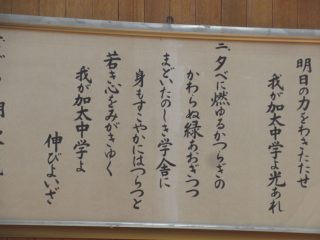 明日の力をわきたたせ
我が加太中学よ光あれ
二、夕べに燃ゆるかつらぎの
かわらぬ緑あおぎつつ
まどいたのしき学舎に
身もすこやかにはつらつと
若き心をみがきゆく
我が加太中学よ
伸びよいざ